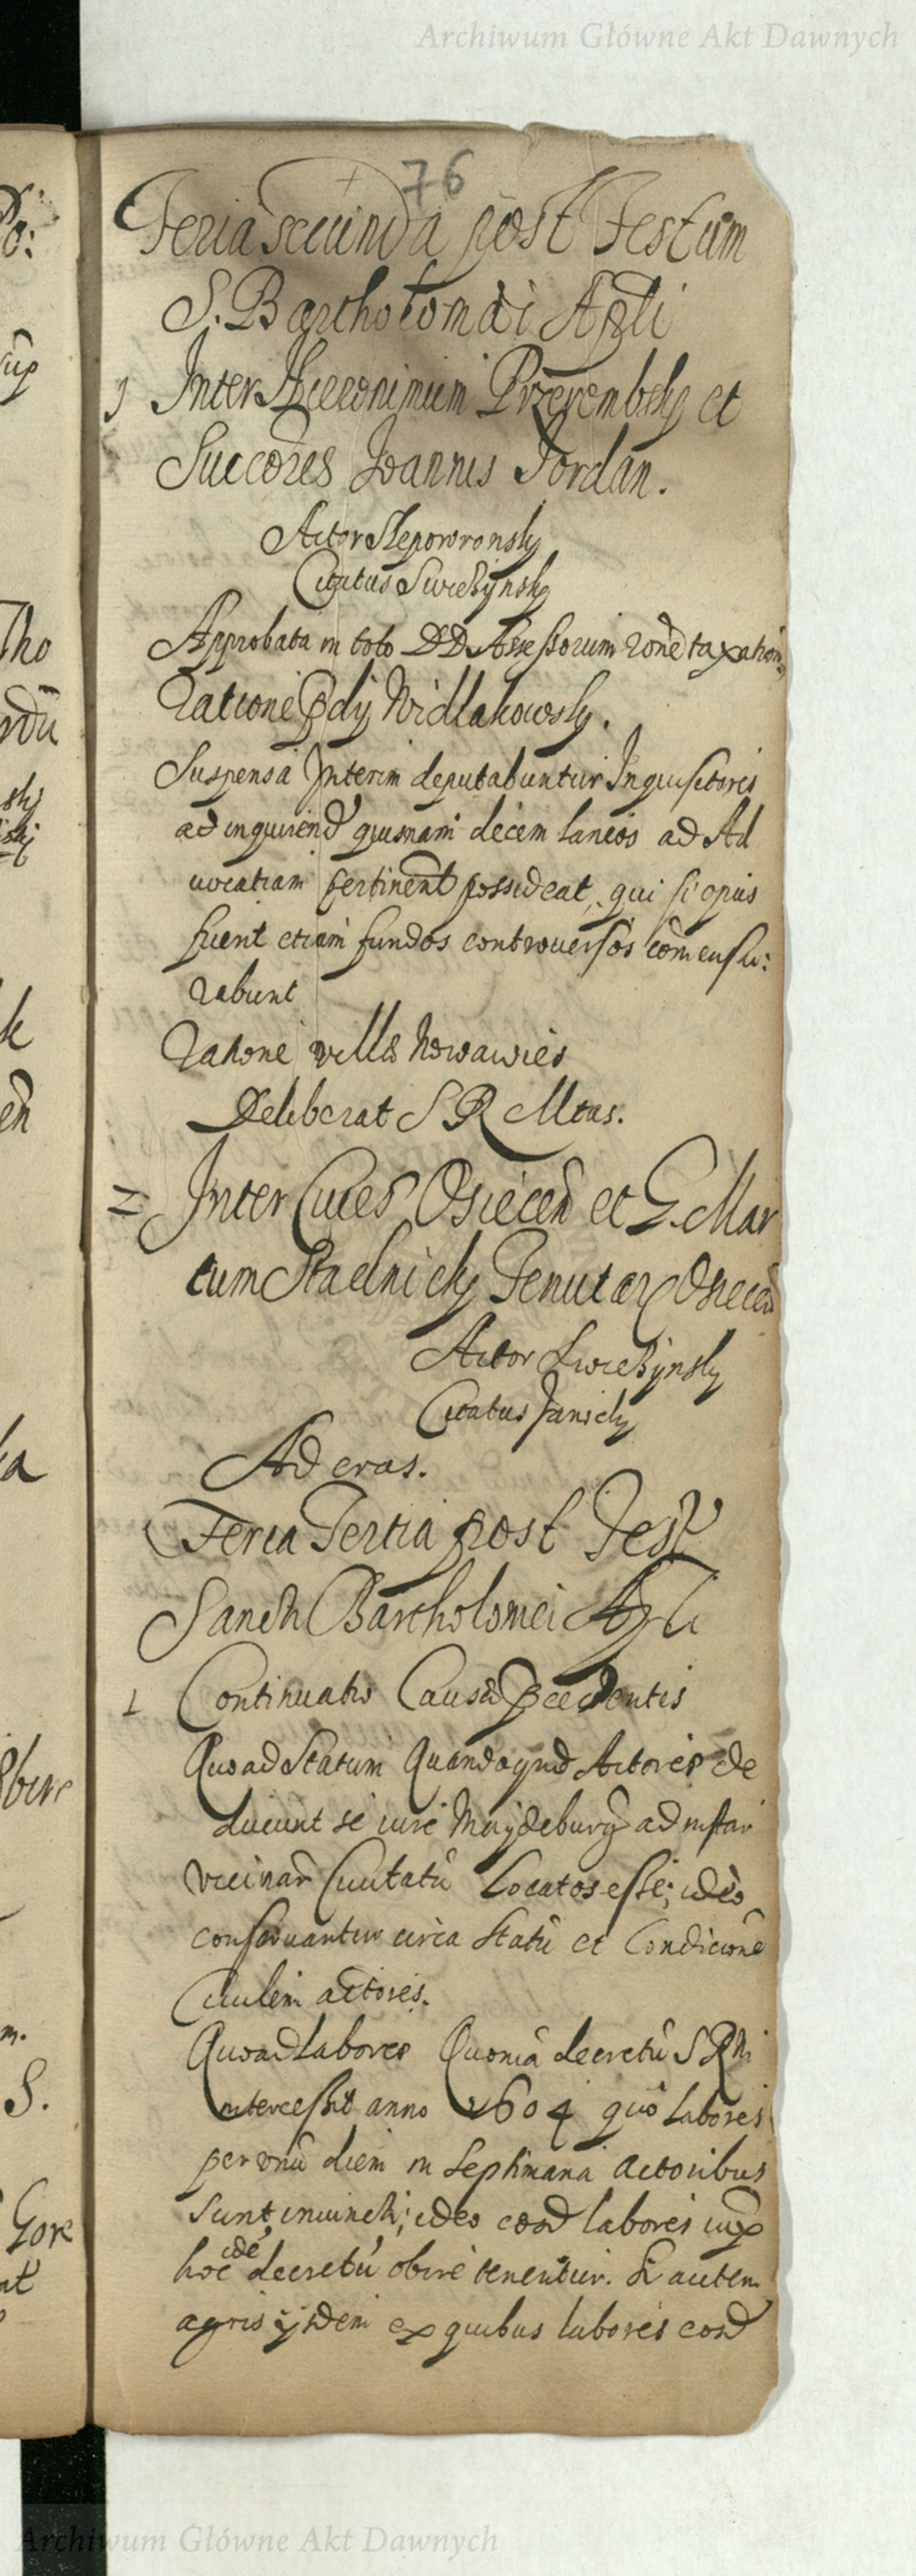 Archiwum Główne Akt Dawnych
76
Feria secunda post Festum
S. Bartholomæi Apli
1 Inter Hieronimum Przerembsky et
Succores Joannis Jordan.
Actor Slepowronsky
Citatus Swiezynsky
Approbata in toto DD Assessorum rõne taxation
Ratione pdij Widlakowsky.
Suspensa Interim deputabuntur Inquisitores
ad inquirend quisnam decem laneos ad Ad
uocatiam pertinent possideat, qui si opus
fuerit etiam fundos controuersos com̃ensu:
rabunt
Ratione villæ Nowawies
Deliberat S R Mtas.
2 Inter Ciues Osiecen et G. Mar
tium Stadnicky Tenutar Osiecen
Actor Swiezynsky
Citatus Janicky
Ad cras.
Feria Tertia post Fest
Sancti Bartholomei Apli
1 Continuatio Causæ pcedentis
Quoad Statum Quandoqud Actores de
ducunt se iure Maydeburg ad instar
vicinar Ciuitatũ Locatos esse; ideo
conseruantur circa Statũ et Condicionẽ
Ciuilem actores.
Quoad labores Quoniã decretũ S R M
intercessit anno 1604 quo labores
per vnũ diem in septimana actoribus
sunt iniuncti; ideo eosd labores iuxp
idẽ
hoc decretũ obire tenentur. Si autem
agris ijsdem ex quibus labores eosd
Po:
Tho
ka
m.
S.
Gore
Archiwum Główne Akt Dawnych